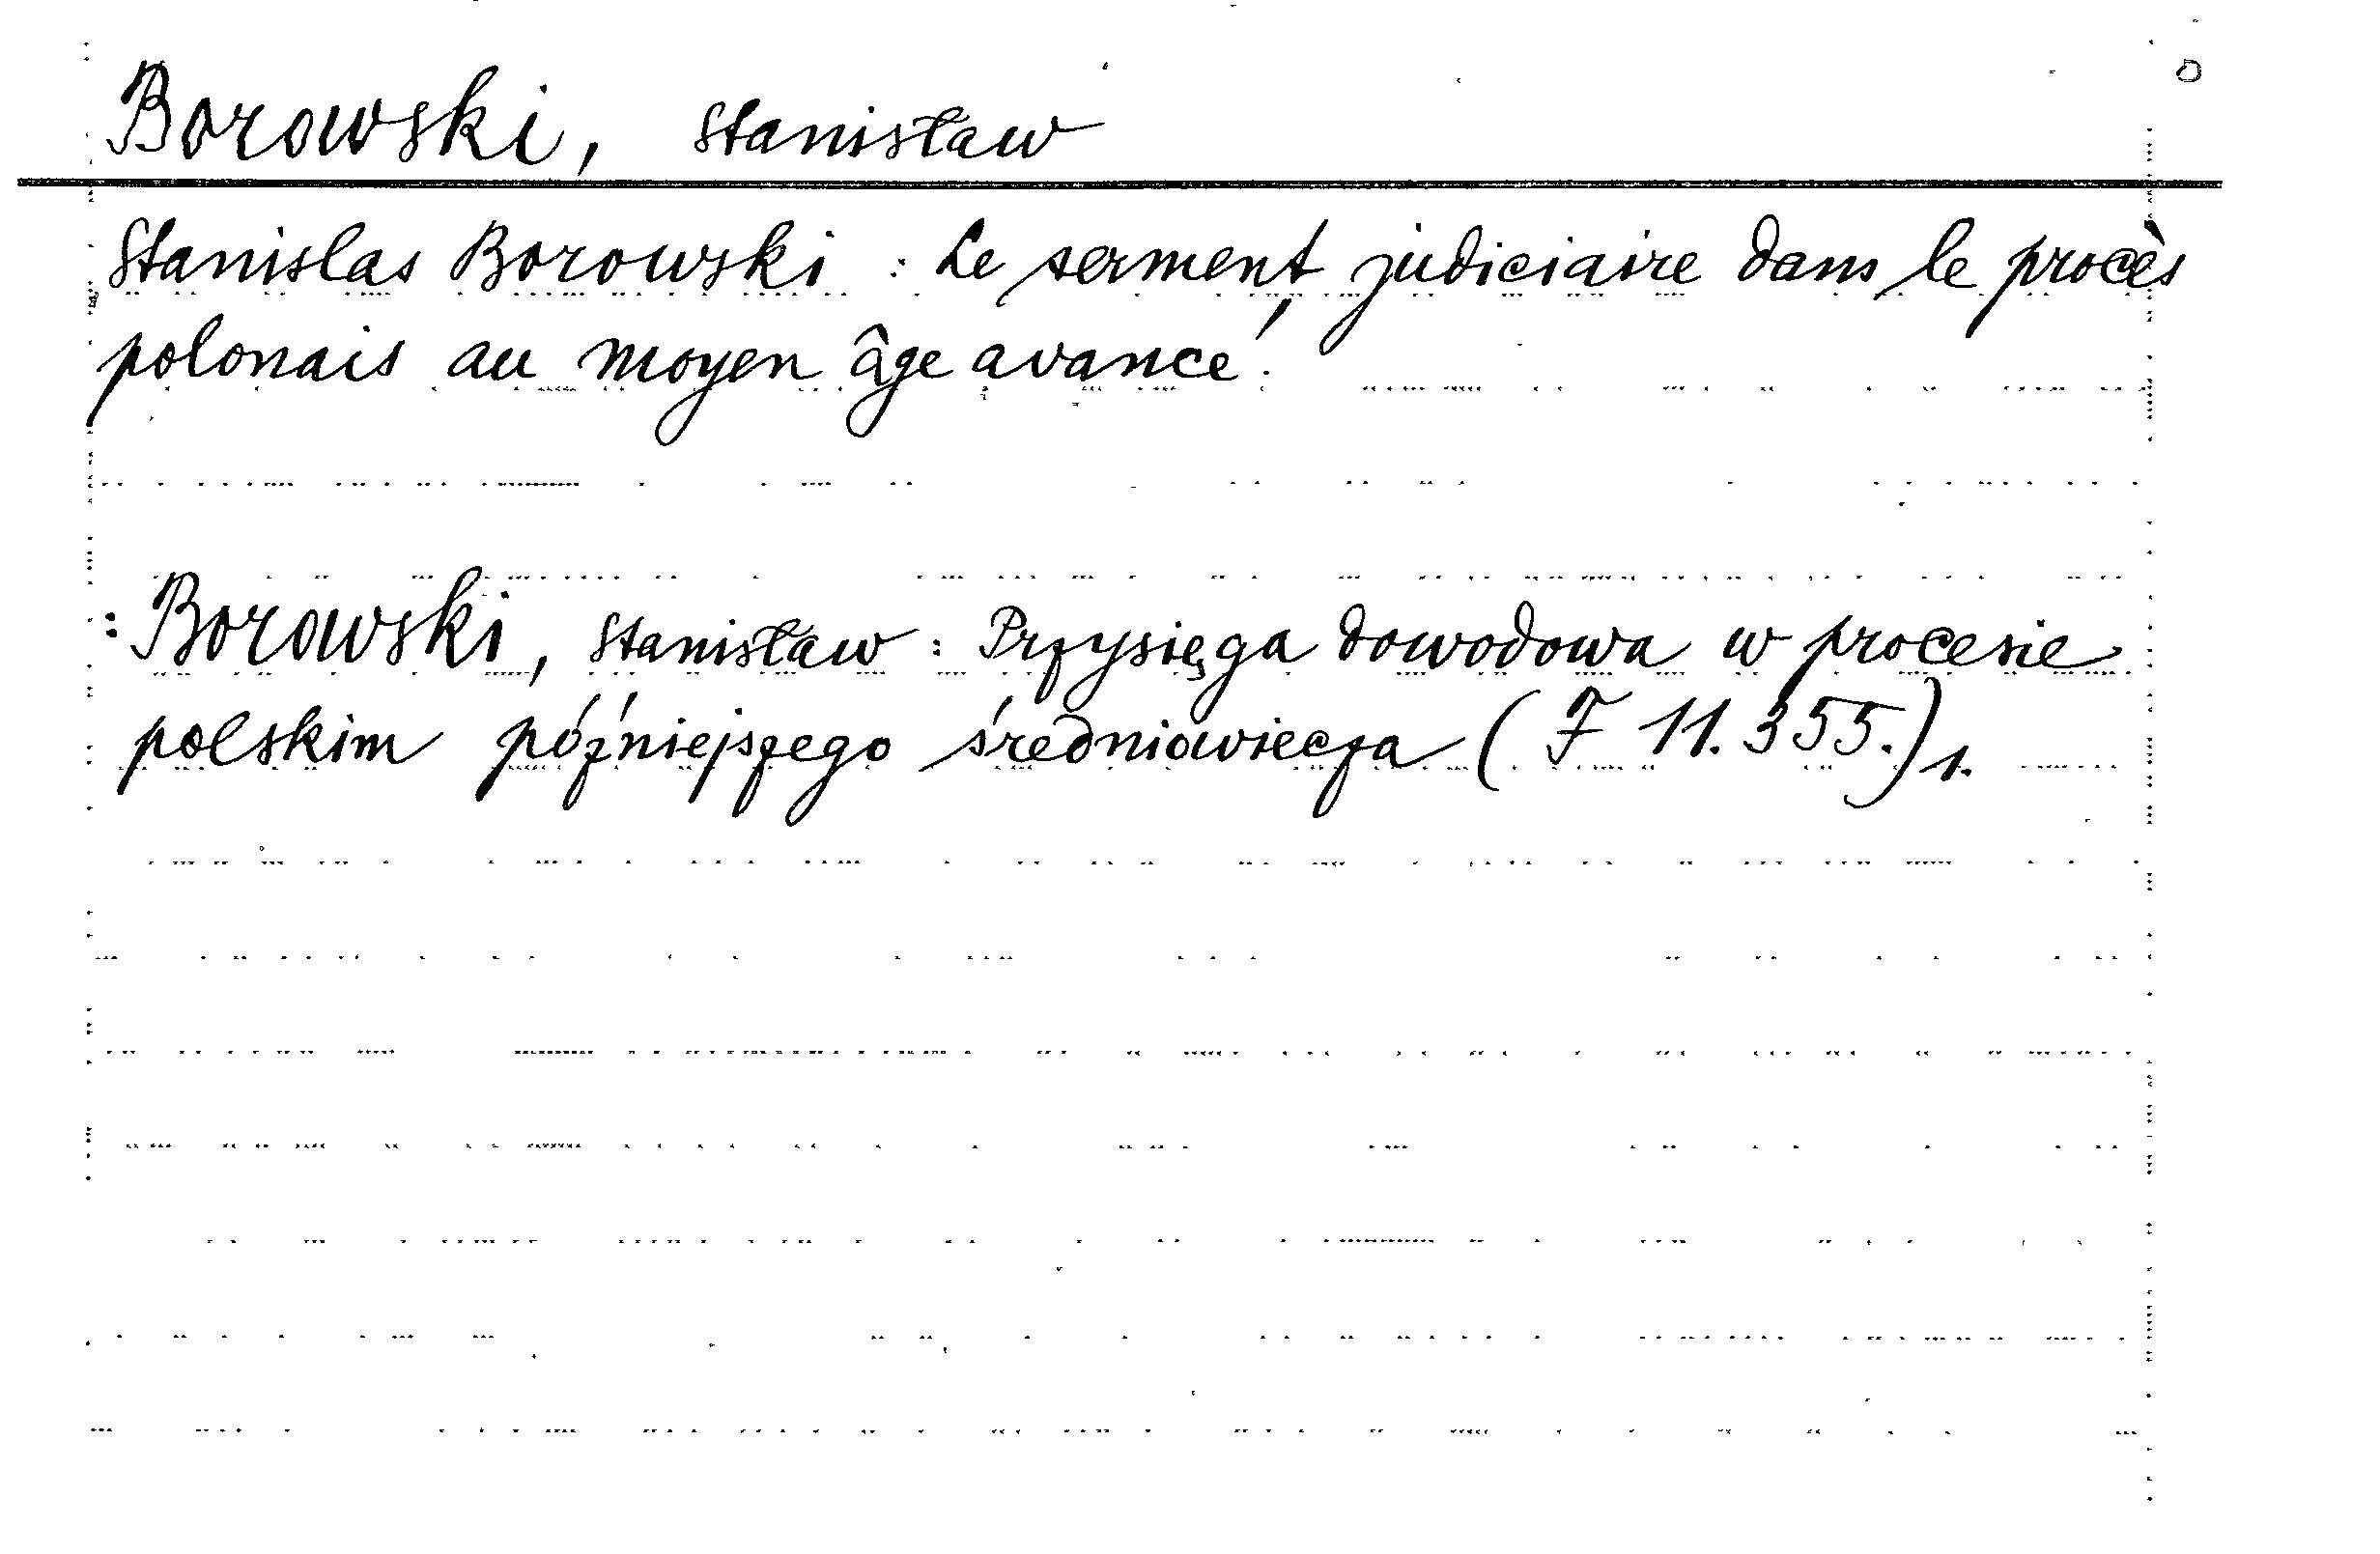 Borowski, Stanisław
Stanislas Borowski : Le serment judiciaire dans le procès
polonais au moyen âge avancé.
: Borowski, Stanisław : Przysięga dowodowa w procesie
polskim późniejszego średniowiecza ( F 11.355.) 1.